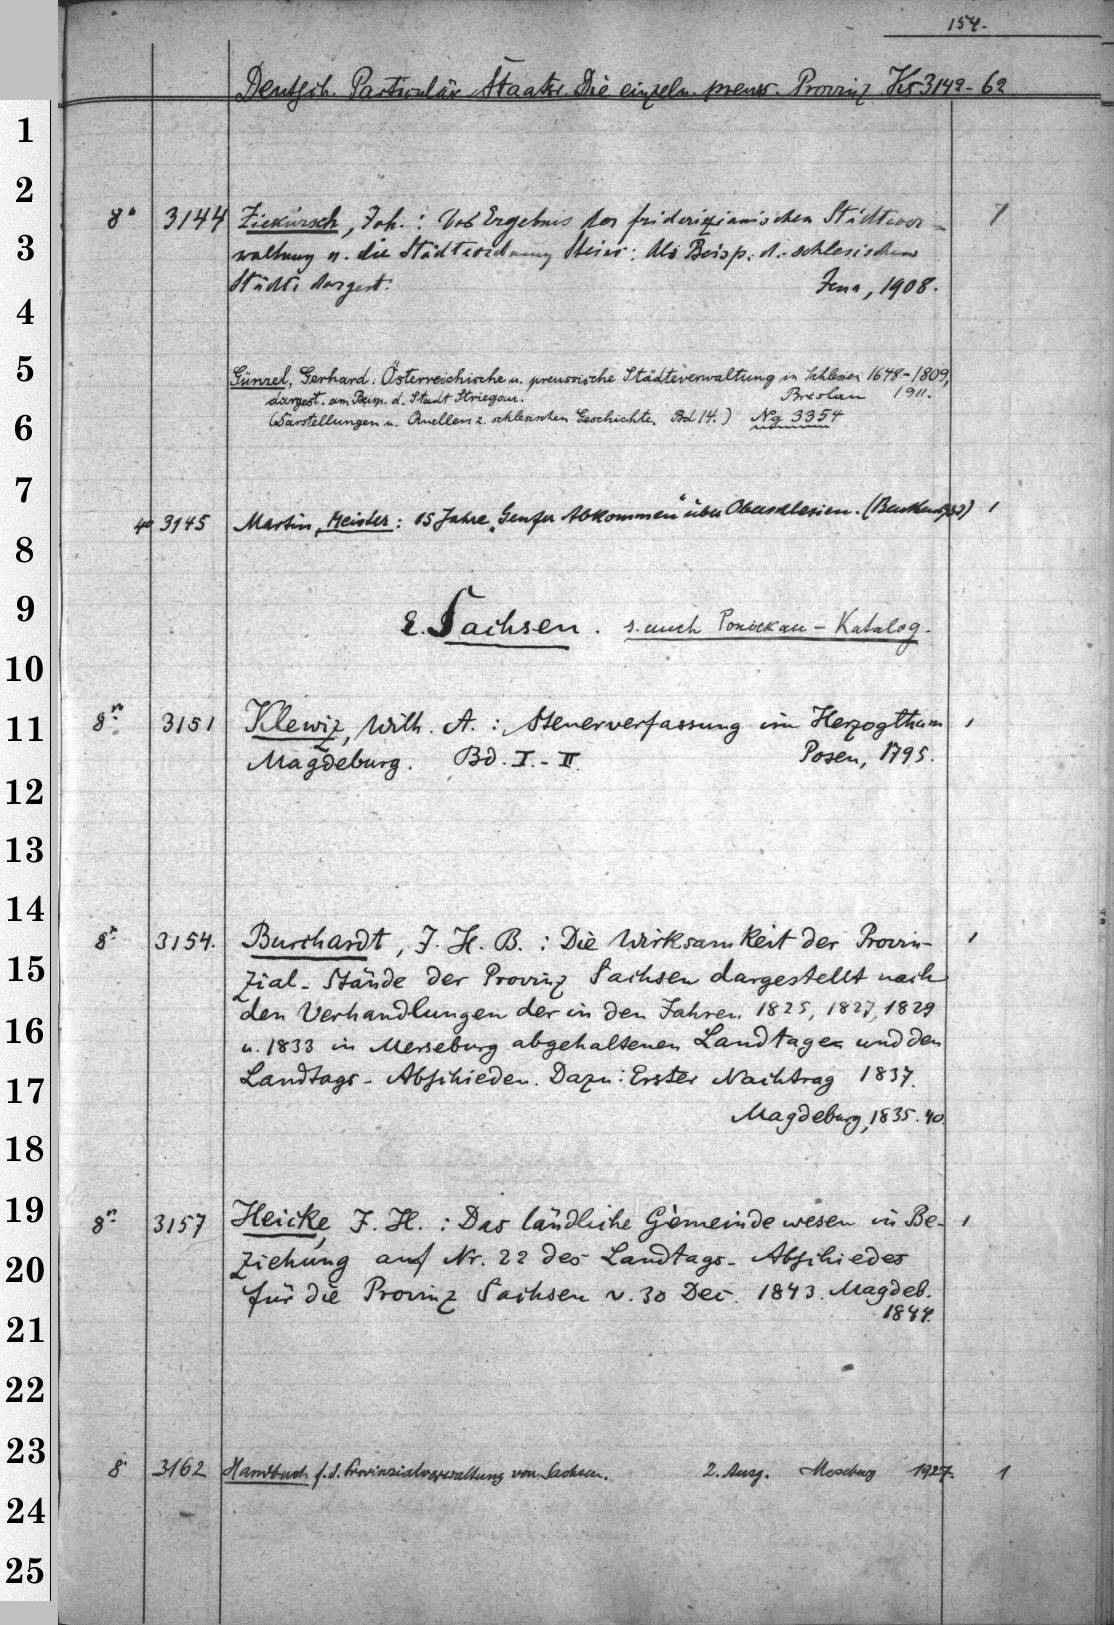 154.
Deutsch. Particulär Staatsr. Die einzeln. preuss. Provinz Ks 3142-62
8° 3144 Ziekursch, Joh.: Das Ergebnis der friderizianischen Städtever- 1
waltung u. die Städteordnung Steins: Als Beisp. d. schlesischen
Städte dargest. Jena, 1908.
Günzel, Gerhard: Österreichische u. preussische Städteverwaltung in Schlesien 1648-1809,
dargest. am Beisp. d. Stadt Striegau. Breslau 1911.
(Darstellungen u. Quellen z. schlesischen Geschichte. Bd 14.) Ng 3354
4° 3145 Martin, Meister: 15 Jahre „Genfer Abkommen" über Oberschlesien. 1
E. Sachsen. s. auch Ponickau-Katalog.
8° 3151 Klewiz, Wilh. A.: Steuerverfassung im Herzogthum 1
Magdeburg. Bd. I.-II. Posen, 1795.
8° 3154. Burchardt, J. H. B.: Die Wirksamkeit der Provin- 1
zial-Stände der Provinz Sachsen dargestellt nach
den Verhandlungen der in den Jahren 1825, 1827, 1829
u. 1833 in Merseburg abgehaltenen Landtagen und den
Landtags-Abschieden. Dazu: Erster Nachtrag 1837.
Magdeburg, 1835. 40.
8° 3157 Heicke, J. H.: Das ländliche Gemeindewesen in Be- 1
ziehung auf Nr. 22 des Landtags-Abschiedes
für die Provinz Sachsen v. 30 Dec. 1843. Magdeb.
1844.
8° 3162 Handbuch f. d. Provinzialverwaltung von Sachsen. 2. Ausg. Merseburg 1927. 1
1
2
3
4
5
6
7
8
9
10
11
12
13
14
15
16
17
18
19
20
21
22
23
24
25